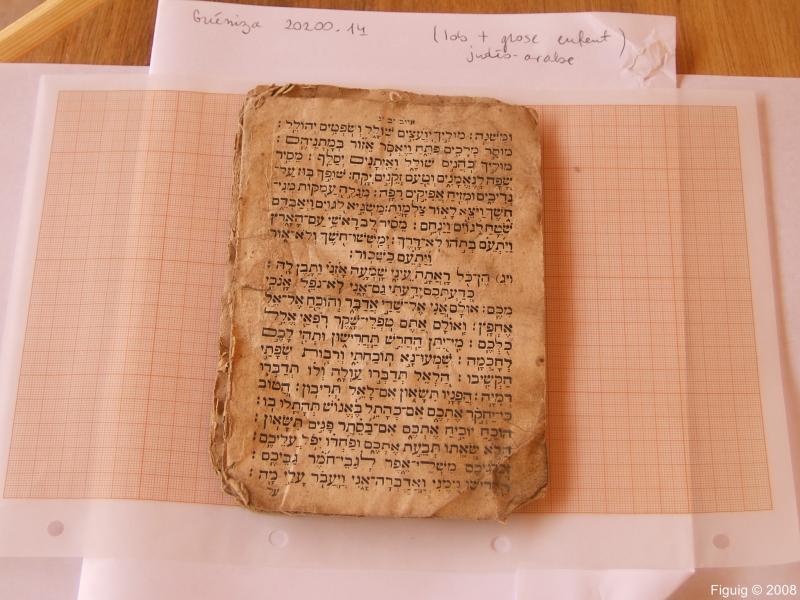 Guéniza 20200.14
(Job + grose enfent)
judéo-arabe
איוב יב יג
ומשגה: מוליך יועצים שולל ושפטים יהולל:
מוסר מלכים פתח ויאסר אזור במתניהם:
מוליך כהנים שולל ואיתנים יסלף: מסיר
שפה לנאמנים וטעם זקנים יקח: שופך בוז על־
נדיבים ומזיח אפיקים רפה: מגלה עמקות מני־
חשך ויצא לאור צלמות: משגיא לגוים ויאבדם
שטח לגוים וינחם: מסיר לב ראשי עם־הארץ
ויתעם בתהו לא־דרך: ימששו־חשך ולא־אור
ויתעם כשכור:
(יג) הן־כל ראתה עיני שמעה אזני ותבן לה:
כדעתכם ידעתי גם־אני לא־נפל אנכי
מכם: אולם אני אל־שדי אדבר והוכח אל־אל
אחפץ: ואולם אתם טפלי־שקר רפאי אלל
כלכם: מי־יתן החרש תחרישון ותהי לכם
לחכמה: שמעו־נא תוכחתי ורבות שפתי
הקשיבו: הלאל תדברו עולה ולו תדברו
רמיה: הפניו תשאון אם־לאל תריבון: הטוב
כי־יחקר אתכם אם־כהתל באנוש תהתלו בו:
הוכח יוכיח אתכם אם־בסתר פנים תשאון:
הלא שאתו תבעת אתכם ופחדו יפל עליכם:
זכרניכם משלי־אפר לגבי־חמר גביכם:
החרישו ממני ואדברה־אני ויעבר עלי מה:
על
Figuig © 2008